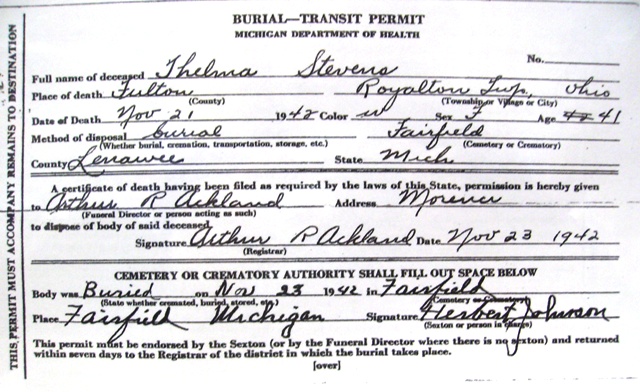 BURIAL—TRANSIT PERMIT
MICHIGAN DEPARTMENT OF HEALTH
No.
Full name of deceased Thelma Stevens
Place of death Fulton Royalton Twp, Ohio
(County) (Township or Village or City)
Date of Death Nov 21 1942 Color w Sex F Age 42 41
Method of disposal burial Fairfield
(Whether burial, cremation, transportation, storage, etc.) (Cemetery or Crematory)
County Lenawee State Mich
A certificate of death having been filed as required by the laws of this State, permission is hereby given
to Arthur R Ackland Address Morenci
(Funeral Director or person acting as such)
to dispose of body of said deceased
Signature Arthur R Ackland Date Nov 23 1942
(Registrar)
CEMETERY OR CREMATORY AUTHORITY SHALL FILL OUT SPACE BELOW
Body was Buried on Nov 23 1942 in Fairfield
(State whether cremated, buried, stored, etc.) (Cemetery or Crematory)
Place Fairfield Michigan Signature Herbert Johnson
(Sexton or person in charge)
This permit must be endorsed by the Sexton (or by the Funeral Director where there is no sexton) and returned
within seven days to the Registrar of the district in which the burial takes place.
[over]
THIS PERMIT MUST ACCOMPANY REMAINS TO DESTINATION